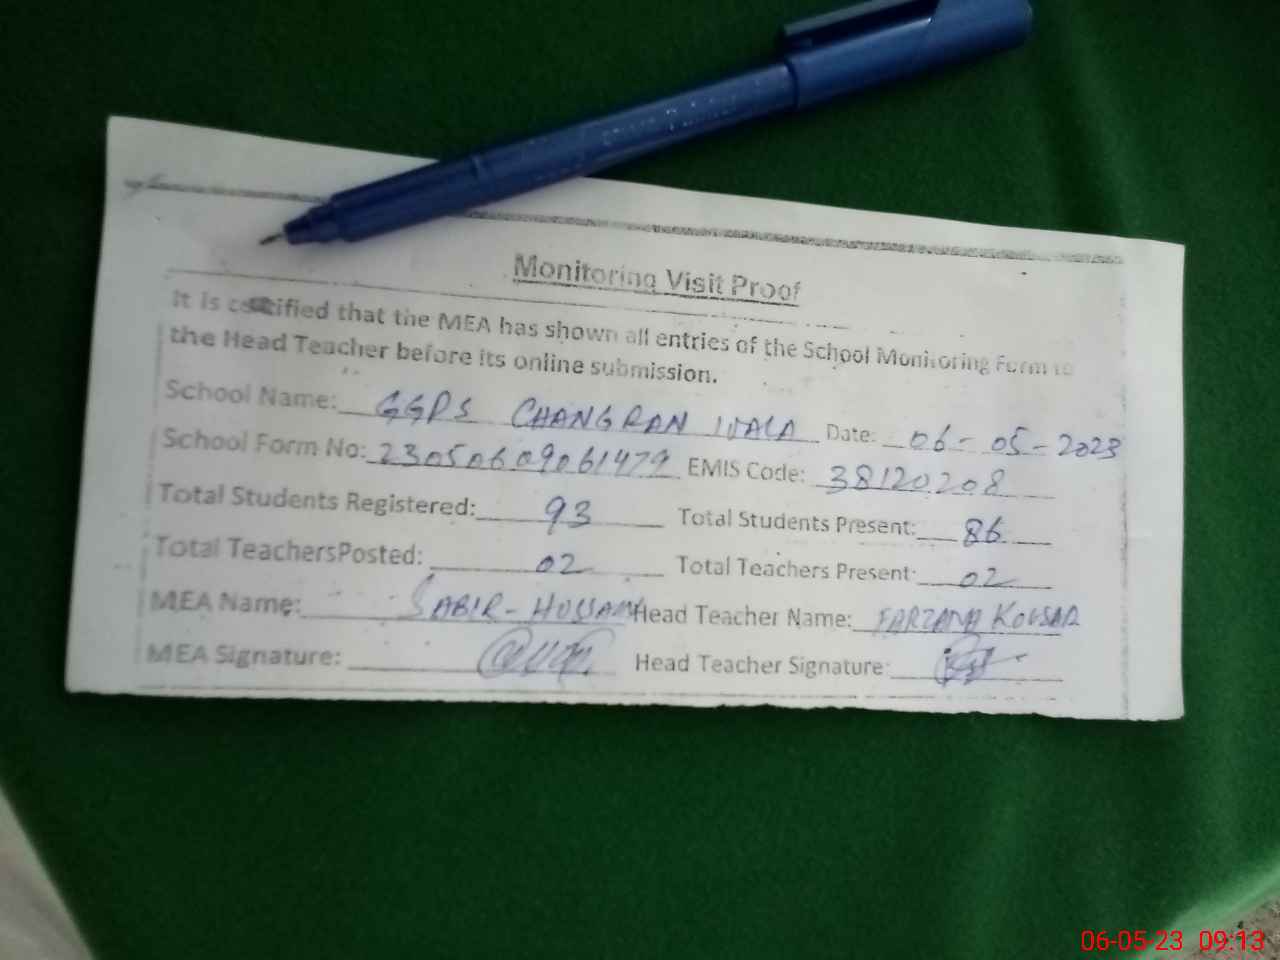 Monitoring Visit Proof
It is certified that the MEA has shown all entries of the School Monitoring Form to
the Head Teacher before its online submission.
School Name: GGPS CHANGRAN WALA Date: 06-05-2023
School Form No: 23050609061479 EMIS Code: 38120208
Total Students Registered: 93 Total Students Present: 86
Total TeachersPosted: 02 Total Teachers Present: 02
MEA Name: SABIR-HUSSAIN Head Teacher Name: FARZANA KOUSAR
MEA Signature: Head Teacher Signature:
06-05-23 09:13